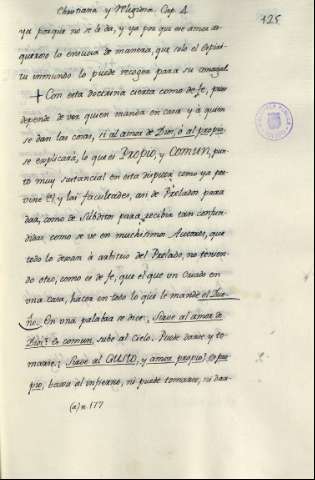 Christiana y Religiosa. Cap. 4.
125
ya porque no se le da, y ya por que en amor
lo ensucia de manera, que solo el
inmundo lo puede recoger para su
+ Con esta doctrina cierta como de fe, pues
depende de ver quien manda en casa y a quien
se dan las cosas, si al amor de Dios, ò al propio
se explicará, lo que es Propio, y Comun, pun-
to muy sustancial en esta disputa como ya pre-
vine 61 y las facultades, asi de Prelados para
dar, como de Subditos para recibir tan confun-
didas, como se ve en muchisimos Autores, que
todo lo dexan à arbitrio del Prelado, no tenien-
do otro, como es de fe, que el que un Criado en
una casa, hacer en todo lo que le mande el Due-
ño. En una palabra se dice: Sirve al amor de
Dios? Es comun, sube al Cielo. Puede darse y to-
marse. Sirve al GUSTO, y amor propio? Es pro-
pio, baxa al infierno, ni puede tomarse, ni dar-
(a) n. 177